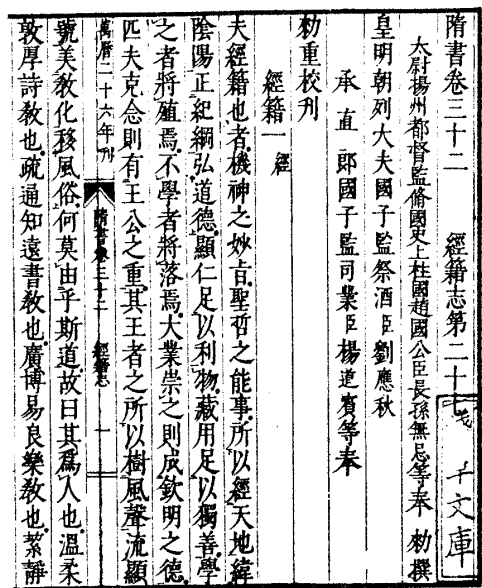 隋書卷三十二　經籍志第二十七
太尉揚州都督監脩國史上柱國趙國公臣長孫無忌等奉　勑撰
皇明朝列大夫國子監祭酒臣劉應秋
承直郎國子監司業臣楊道賓等奉
勑重校刊
經籍一　經
夫經籍也者機神之妙旨聖哲之能事所以經天地緯
陰陽正紀綱弘道德顯仁足以利物藏用足以獨善學
之者將殖焉不學者將落焉大業崇之則成欽明之德
匹夫克念則有王公之重其王者之所以樹風聲流顯
萬曆二十六年刊　隋書卷三十二　經籍志　一
號美敎化移風俗何莫由乎斯道故曰其爲人也溫柔
敦厚詩敎也疏通知遠書敎也廣博易良樂敎也絜靜
文庫